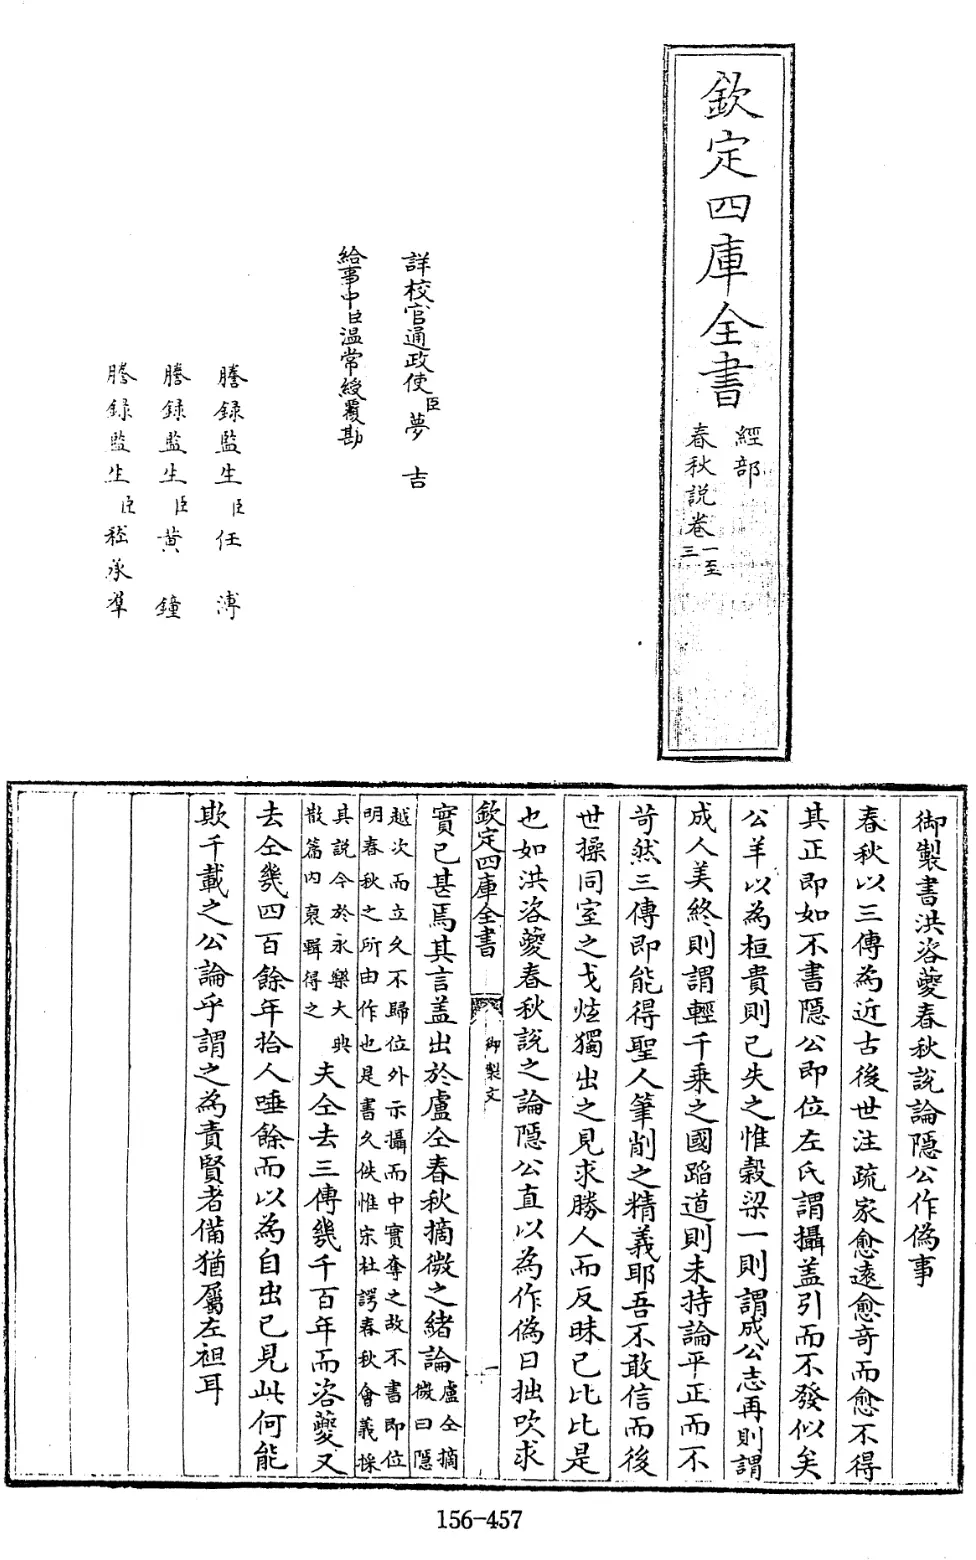 欽定四庫全書
經部
春秋説卷一至三
詳校官通政使臣夢吉
給事中臣温常綬覆勘
謄録監生臣任溥
謄録監生臣黄鐘
謄録監生臣嵇承羣
御製書洪咨夔春秋説論隱公作偽事
春秋以三傳為近古後世注疏家愈遠愈竒而愈不得
其正即如不書隱公即位左氏謂攝盖引而不發似矣
公羊以為桓貴則已失之惟穀梁一則謂成公志再則謂
成人美終則謂輕千乗之國蹈道則未持論平正而不
苛然三傳即能得聖人筆削之精義耶吾不敢信而後
世操同室之戈炫獨出之見求勝人而反昧已比比是
也如洪咨夔春秋説之論隱公直以為作偽曰拙吹求
欽定四庫全書
御製文
一
實已甚焉其言盖出於盧仝春秋摘微之緒論盧仝摘微曰隱
越次而立久不歸位外示攝而中實奪之故不書即位
明春秋之所由作也是書久佚惟宋杜諤春秋會義採
其説今於永樂大典
散篇内裒輯得之
夫仝去三傳幾千百年而咨夔又
去仝幾四百餘年拾人唾餘而以為自出已見此何能
欺千載之公論乎謂之為責賢者備猶屬左袒耳
156-457